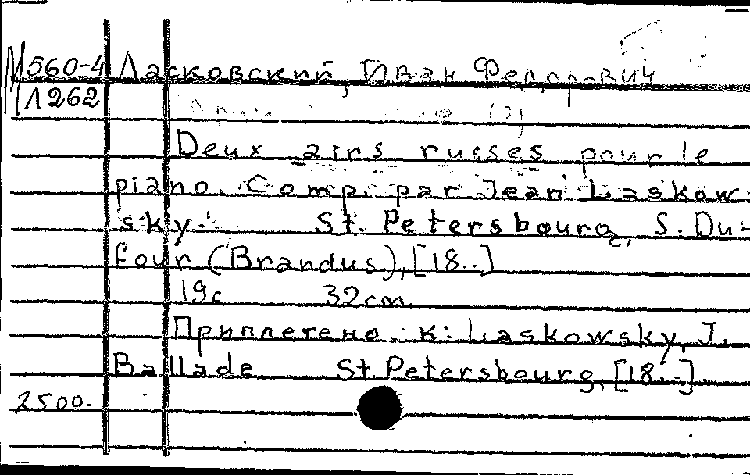 М560-4 Ласковский, Иван Федорович
Л262
Deux airs russes pour le
piano. Comp. par Jean Laskow-
sky. St. Petersbourg, S. Du-
four (Brandus), [18..]
19с 32cm.
Приплетено к: Laskowsky, J.
Ballade St. Petersbourg, [18..]
2500.